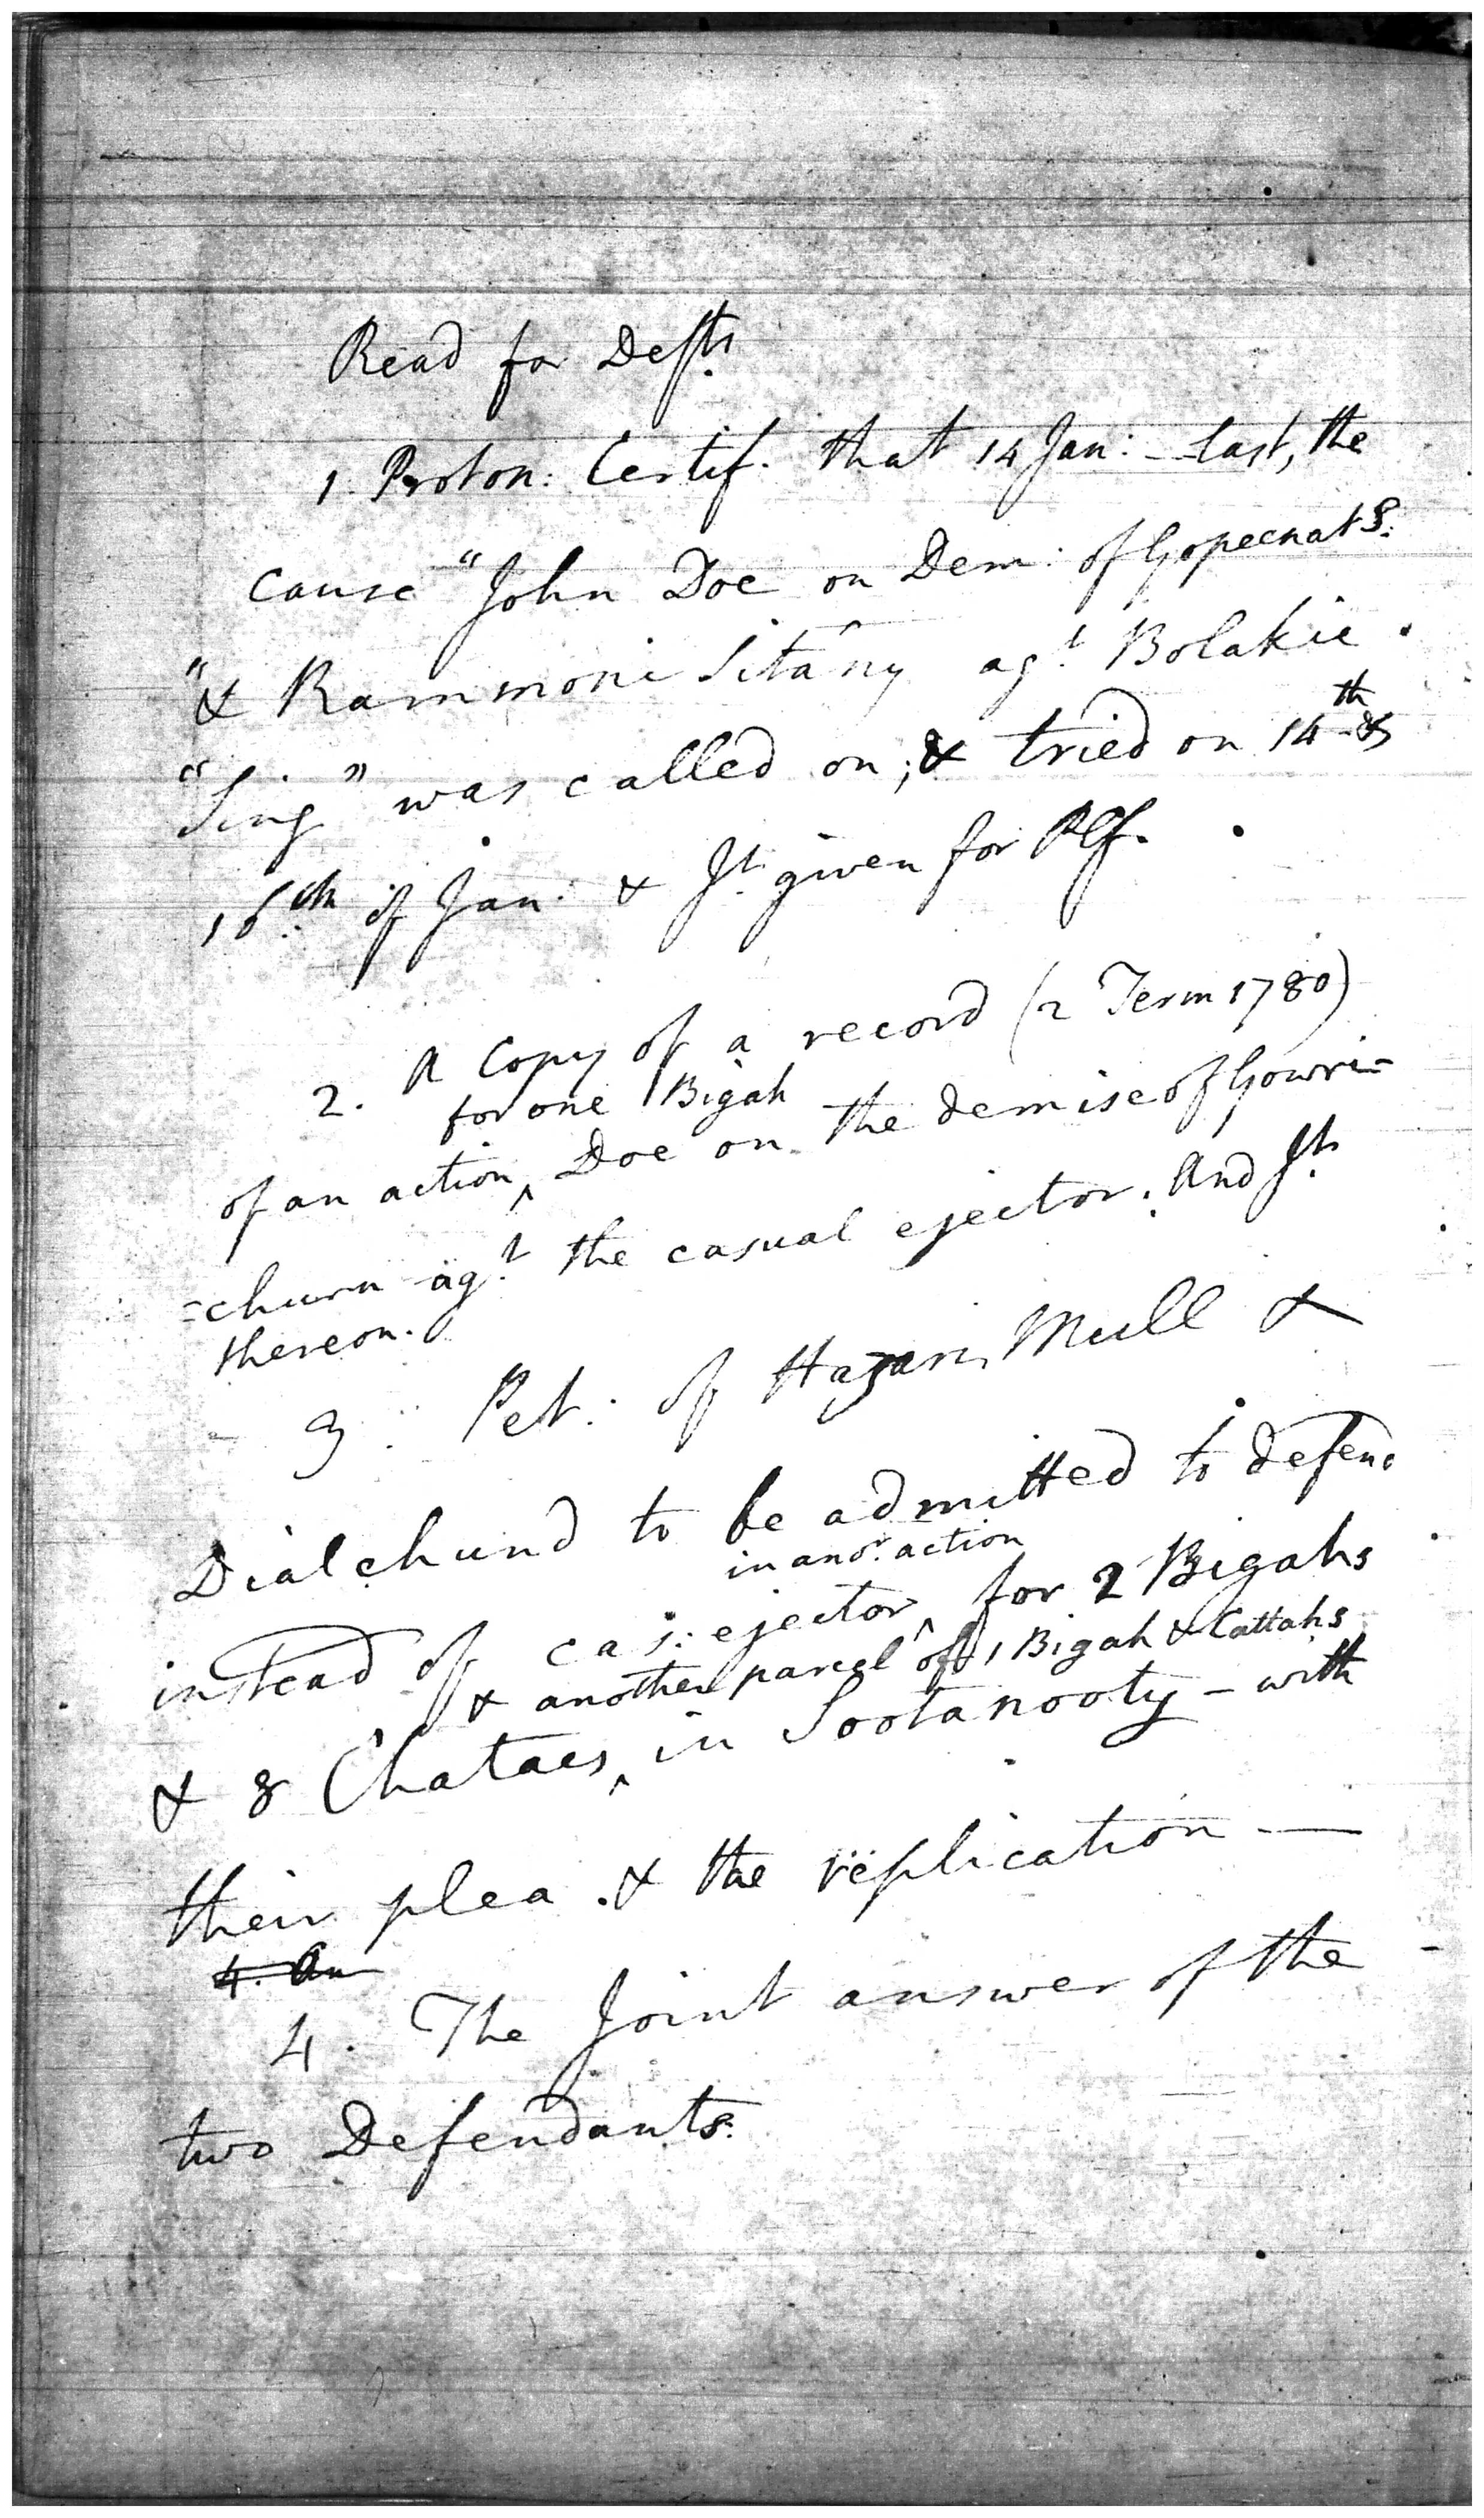 Read for Defts.
1. Proton: Certif. that 14 Jan: - last, the
cause "John Doe on Dem: of Gopeenat S:
"& Rammoni Sitany agt. Bolakie
"Sing" was called on; & tried on 14th &
16th of Jan: & Jt. given for Plf.
2. A Copy of a record (2 Term 1780)
for one Bigah
of an action, ^ Doe on the demise of Gowri-
=churn agt. the casual ejector. And Jt.
thereon.
3. Pet: of Hazari Mull &
Dialchund to be admitted to defend
in anor. action
instead of cas: ejector ^ for 2 Bigahs
& another parcel of 1 Bigah & Cattahs
& 8 Chataes ^ in Sootanooty - with
their plea. & the replication —
4. An
4. The Joint answer of the
two Defendants.